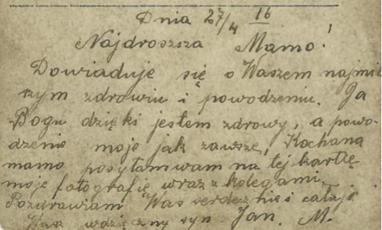 Dnia 27/4 16
Najdroższa Mamo!
Dowiaduję się o Waszem najmil
szym zdrowiu i powodzeniu. Ja
Bogu dzięki jestem zdrowy, a powo-
dzenie moje jak zawsze, Kochana
mamo posyłam wam na tej kartkę
moje fotografię wraz z kolegami
Pozdrawiam Was serdecznie i całuję
wdzięczny syn Jan M.